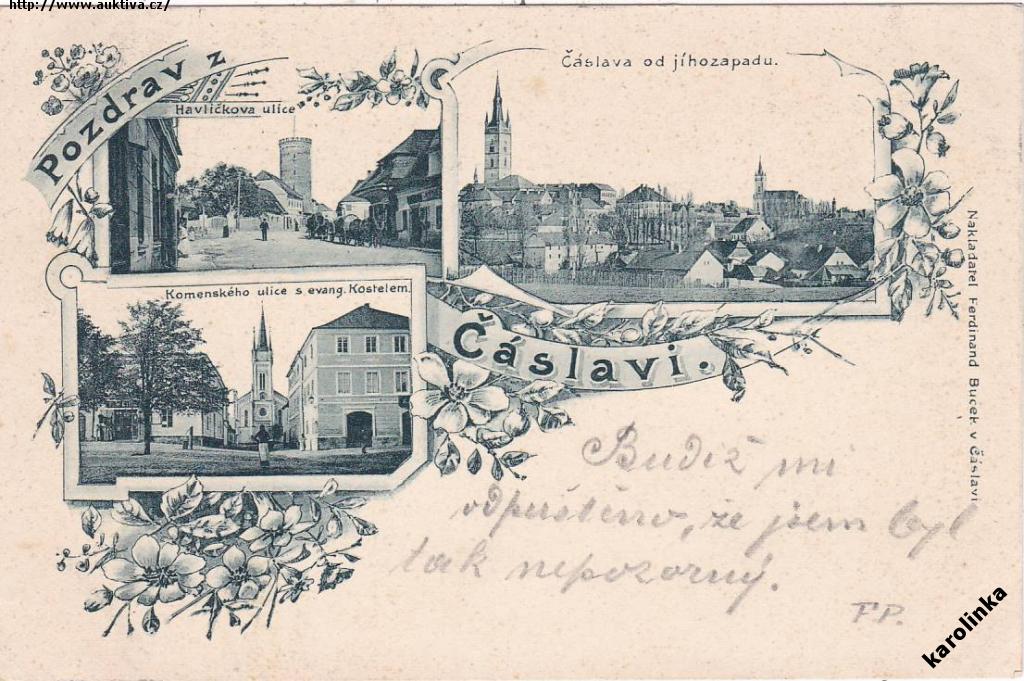 http://www.auktiva.cz/
Pozdrav z
Havlíčkova ulice
Čáslava od jíhozapadu.
Komenského ulice s evang. Kostelem.
Čáslavi.
Nakladatel Ferdinand Bucek v Čáslavi
Budiž mi
odpuštěno, že jsem byl
tak nepozorný.
FP.
karolinka